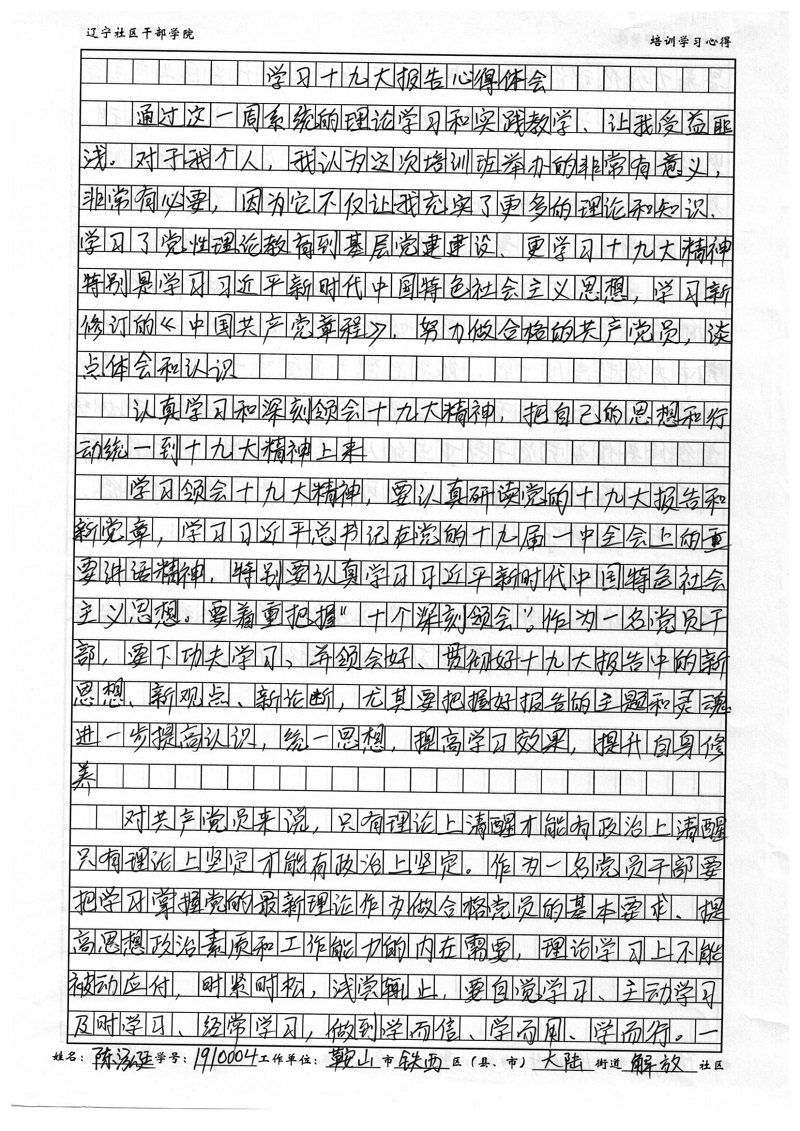 辽宁社区干部学院 培训学习心得
学习十九大报告心得体会
通过这一周系统的理论学习和实践教学、让我受益匪
浅。对于我个人，我认为这次培训班举办的非常有意义，
非常有必要，因为它不仅让我充实了更多的理论和知识、
学习了党性理论教育到基层党建建设、更学习十九大精神
特别是学习习近平新时代中国特色社会主义思想，学习新
修订的《中国共产党章程》，努力做合格的共产党员，谈
点体会和认识
认真学习和深刻领会十九大精神，把自己的思想和行
动统一到十九大精神上来
学习领会十九大精神，要认真研读党的十九大报告和
新党章，学习习近平总书记在党的十九届一中全会上的重
要讲话精神，特别要认真学习习近平新时代中国特色社会
主义思想。要着重把握“十个深刻领会”，作为一名党员干
部，要下功夫学习、并领会好、贯彻好十九大报告中的新
思想、新观点、新论断，尤其要把握好报告的主题和灵魂
进一步提高认识，统一思想，提高学习效果，提升自身修
养
对共产党员来说，只有理论上清醒才能有政治上清醒
只有理论上坚定才能有政治上坚定。作为一名党员干部要
把学习掌握党的最新理论作为做合格党员的基本要求、提
高思想政治素质和工作能力的内在需要，理论学习上不能
被动应付，时紧时松，浅尝辄止，要自觉学习、主动学习
及时学习、经常学习，做到学而信、学而用、学而行。一
姓名：陈泓延学号：1910004工作单位：鞍山市铁西区（县、市）大陆街道解放社区